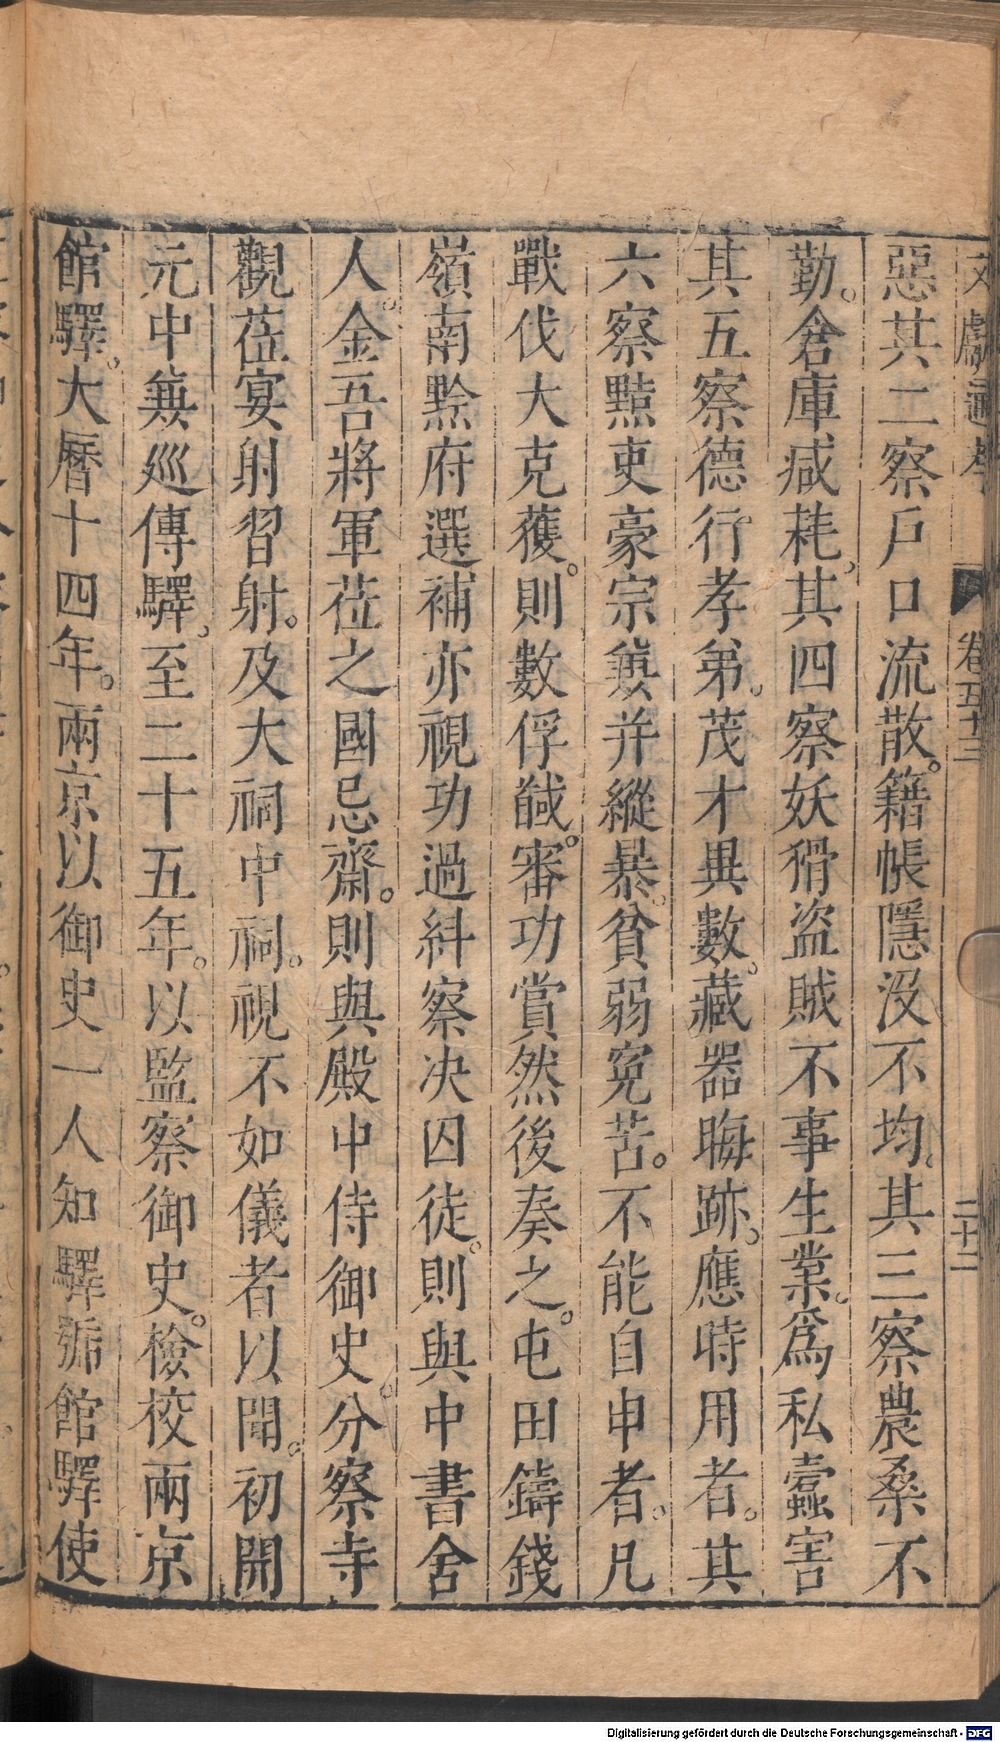 文獻通考 卷五十三 二十二
惡其二察戶口流散。籍帳隱沒不均。其三察農桑不
勤。倉庫咸耗。其四察妖猾盜賊不事生業。爲私蠹害
其五察德行孝弟。茂才異數。藏器晦跡。應時用者。其
六察黠吏豪宗兼并縱暴。貧弱冤苦。不能自申者。凡
戰伐大克獲。則數俘馘。審功賞然後奏之。屯田鑄錢
嶺南黔府選補亦視功過糾察决囚徒。則與中書舍
人。金吾將軍莅之國忌齋。則與殿中侍御史。分察寺
觀莅宴射習射。及大祠中祠。視不如儀者以聞。初開
元中兼巡傳驛。至二十五年。以監察御史。檢校兩京
館驛。大曆十四年。兩京以御史一人知驛號館驛使
Digitalisierung gefördert durch die Deutsche Forschungsgemeinschaft - DFG